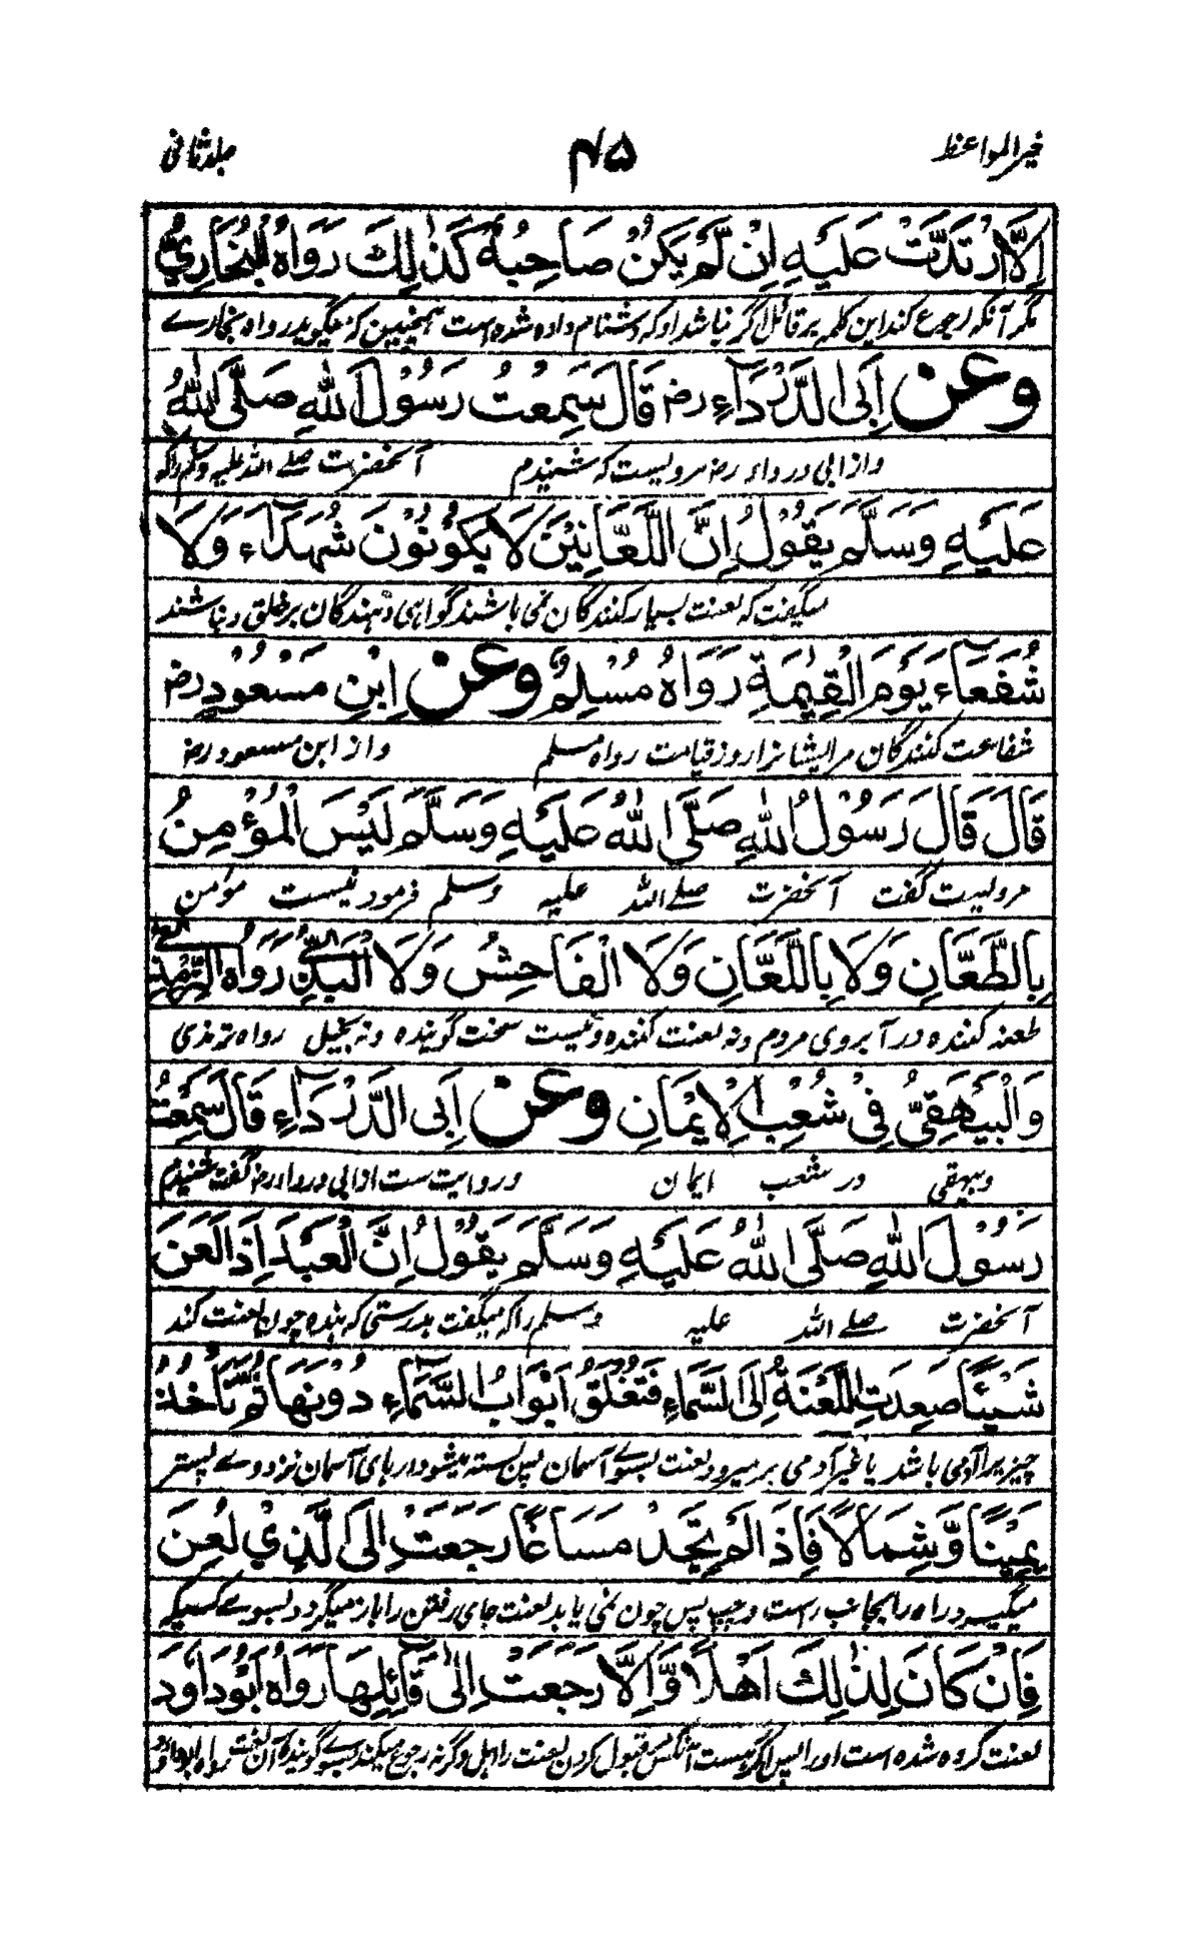 خیر المواعظ ۴۵ جلد ثانی
اِلَّا ارْتَدَّتْ عَلَیْهِ اِنْ لَّمْ یَكُنْ صَاحِبُهٗ كَذٰلِكَ رَوَاهُ الْبُخَارِيُّ
مگر آنکه رجوع کند این کلمه بر قائل اگر نباشد او که دشنام داده شده است همچنین که میگوید رواه بخارے
وَعَنْ اَبِی الدَّرْدَآءِ رض قَالَ سَمِعْتُ رَسُوْلَ اللّٰهِ صَلَّی اللّٰهُ
و از ابی درداء رضه مرویست که شنیدم آنحضرت صلے الله علیه وسلم را که
عَلَیْهِ وَسَلَّمَ یَقُوْلُ اِنَّ اللَّعَّانِیْنَ لَا یَكُوْنُوْنَ شُهَدَآءَ وَلَا
میگفت که لعنت بسیار کنندگان نمی باشند گواهی دهندگان بر خلق و نباشند
شُفَعَآءَ یَوْمَ الْقِیٰمَةِ رَوَاهُ مُسْلِمٌ وَعَنْ اِبْنِ مَسْعُوْدٍ رض
شفاعت کنندگان مر ایشانرا روز قیامت رواه مسلم و از ابن مسعود رضه
قَالَ قَالَ رَسُوْلُ اللّٰهِ صَلَّی اللّٰهُ عَلَیْهِ وَسَلَّمَ لَیْسَ الْمُؤْمِنُ
مرویست گفت آنحضرت صلے الله علیه وسلم فرمود نیست مؤمن
بِالطَّعَّانِ وَلَا بِاللَّعَّانِ وَلَا الْفَاحِشِ وَلَا الْبَذِيِّ رَوَاهُ التِّرْمِذِيُّ
طعنه کننده در آبروی مردم و نه لعنت کننده و نیست سخت گوینده و نه بخیل رواه ترمذی
وَالْبَیْهَقِيُّ فِيْ شُعَبِ الْاِیْمَانِ وَعَنْ اَبِی الدَّرْدَآءِ قَالَ سَمِعْتُ
وبیهقی در شعب ایمان و روایت ست از ابی درداء رضه گفت شنیدم
رَسُوْلَ اللّٰهِ صَلَّی اللّٰهُ عَلَیْهِ وَسَلَّمَ یَقُوْلُ اِنَّ الْعَبْدَ اِذَا لَعَنَ
آنحضرت صلے الله علیه وسلم را که میگفت بدرستی که بنده چون لعنت کند
شَیْئًا صَعِدَتِ اللَّعْنَةُ اِلَی السَّمَآءِ فَتُغْلَقُ اَبْوَابُ السَّمَآءِ دُوْنَهَا ثُمَّ تَاْخُذُ
چیزیرا آدمی باشد یا غیر آدمی بر میرود لعنت بسوے آسمان پس بسته میشود درهای آسمان نزد وے پستر
یَمِیْنًا وَّشِمَالًا فَاِذَا لَمْ تَجِدْ مَسَاغًا رَجَعَتْ اِلَی الَّذِيْ لُعِنَ
میگیرد راه را بجانب راست و چپ پس چون نمی یابد لعنت جای رفتن را باز میگردد بسوے کسیکه
فَاِنْ كَانَ لِذٰلِكَ اَهْلًا وَّاِلَّا رَجَعَتْ اِلٰی قَآئِلِهَا رَوَاهُ اَبُوْدَاوٗدَ
لعنت کرده شده است او را پس اگر هست آنکس قبول کردن لعنت را اهل وگرنه رجوع میکند بسوے گوینده آن لعنت رواه ابوداود